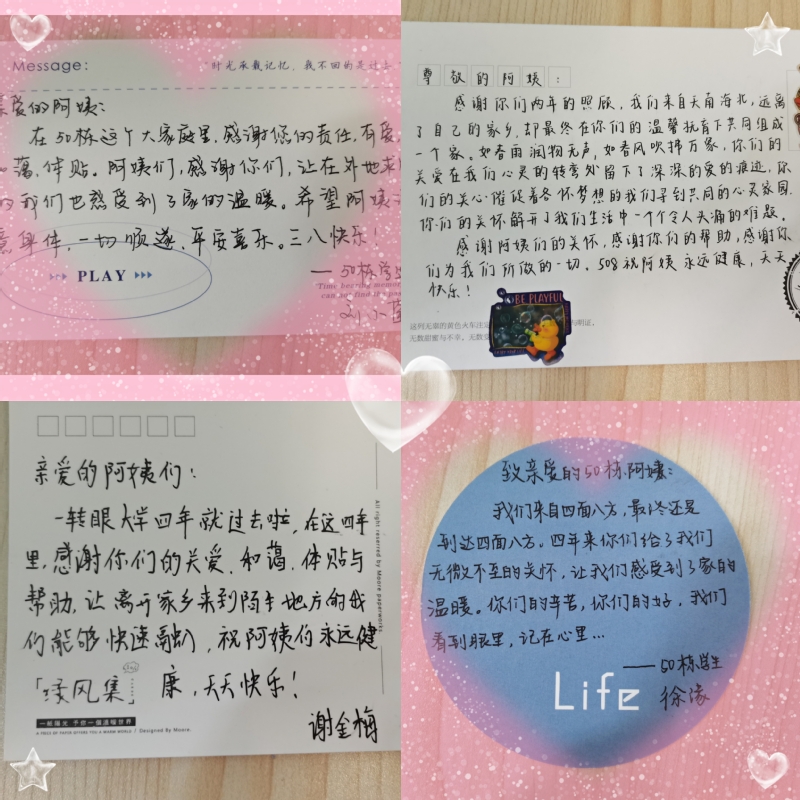 Message:
"时光承载记忆,我不回的是过去
亲爱的阿姨:
在50栋这个大家庭里,感谢您的责任,有爱,
蔼,体贴。阿姨们,感谢你们,让在外地求
的我们也感受到了家的温暖。希望阿姨
身体,一切顺遂,平安喜乐。三八快乐!
PLAY
—50栋学生
Time bearing memories
can not find is past
刘小
尊敬的阿姨:
感谢你们两年的照顾,我们来自天南海北,远离
了自己的家乡,却最终在你们的温馨抚育下共同组成
一个家。如春雨润物无声,如春风吹拂万家,你们的
关爱在我们心灵的转弯处留下了深深的爱的痕迹,你
们的关心催促着各怀梦想的我们寻到共同的心灵家园,
你们的关怀解开了我们生活中一个个令人头痛的难题。
感谢阿姨们的关怀,感谢你们的帮助,感谢你
们为我们所做的一切。508祝阿姨永远健康,天天
快乐!
BE PLAYFUL
这列无靠的黄色火车注定
与明证,
无数甜蜜与不幸,无数
亲爱的阿姨们:
一转眼大学四年就过去啦,在这四年
里,感谢你们的关爱、和蔼、体贴与
帮助,让离开家乡来到陌生地方的我
们能够快速融入,祝阿姨们永远健
康,天天快乐!
「凌风集」
谢金梅
一纸陽光 予你一個溫暖世界
A PIECE OF PAPER GIVING YOU A WARM WORLD / Designed By Moore.
All right reserved by Moore paperworks
致亲爱的50栋阿姨:
我们来自四面八方,最终还是
到达四面八方。四年来你们给了我们
无微不至的关怀,让我们感受到了家的
温暖。你们的辛苦,你们的好,我们
看到眼里,记在心里...
——50栋学生
Life
徐